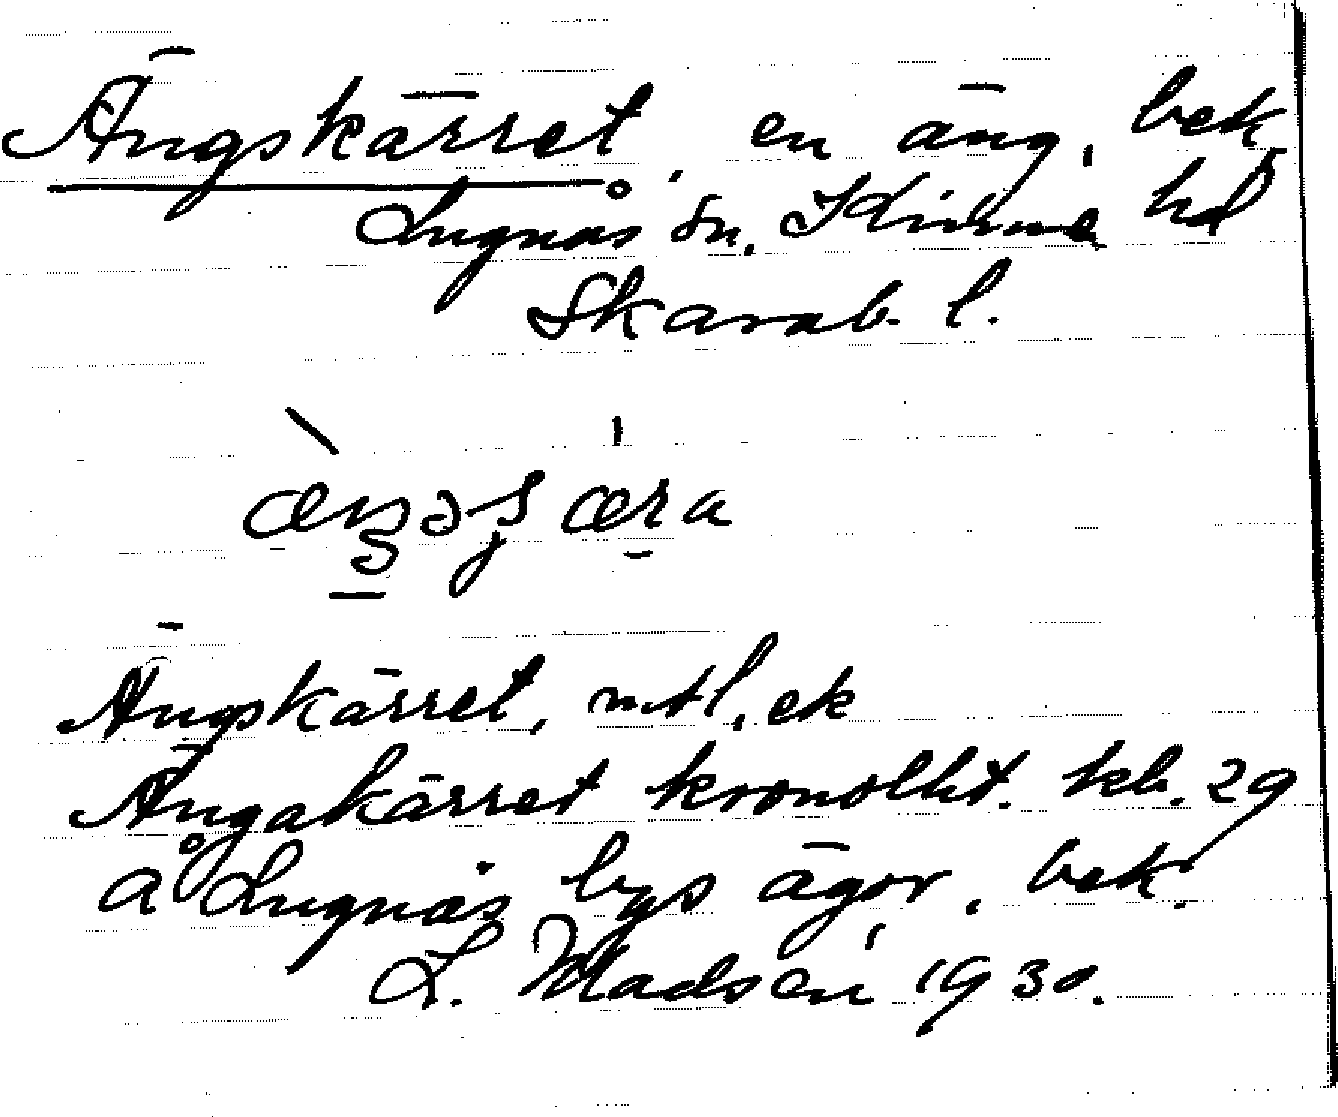 Ängskärret, en äng, bek
Lugnås sn, Kinne hd
Skarab. l.
æŋəʂæra
Ängskärret, mtl, ek
Ängakärret kronolht. kb. 29
å Lugnås bys ägor, bek.
L. Madsén 1930.